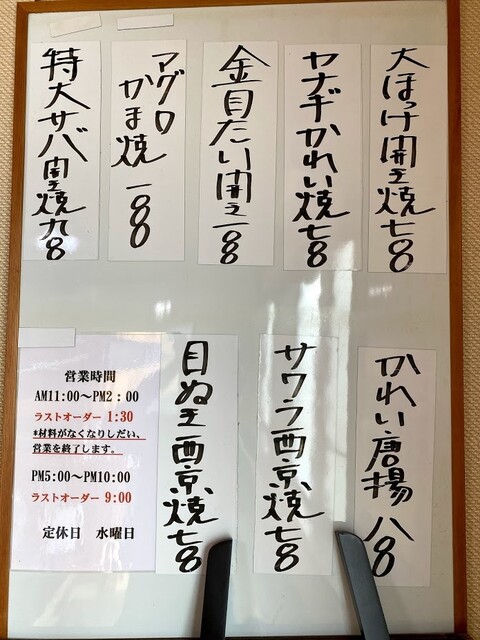 大ほっけ開き焼七八〇
ヤナギかれい焼七八〇
金目たい開き一八〇
マグロ
かま焼 一八〇
特大サバ開き焼九八〇
かれい唐揚 八八〇
サワラ西京焼七八〇
目ぬき西京焼七八〇
営業時間
AM11:00～PM2:00
ラストオーダー 1:30
*材料がなくなりしだい、
営業を終了します。
PM5:00～PM10:00
ラストオーダー 9:00
定休日 水曜日